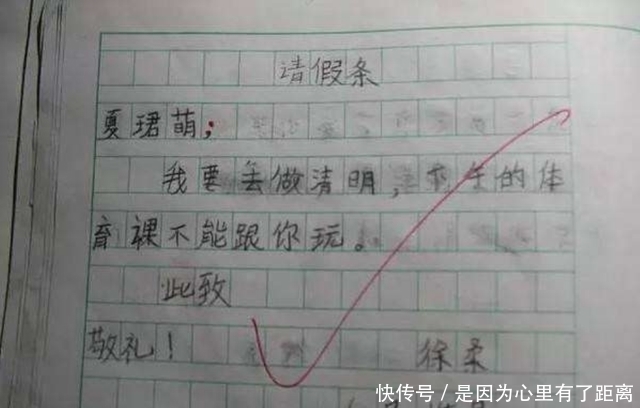 请假条
夏珺萌:
我要去做清明,的体
育裸不能跟你玩。
此致
敬礼!
徐柔
快传号/是因为心里有了距离